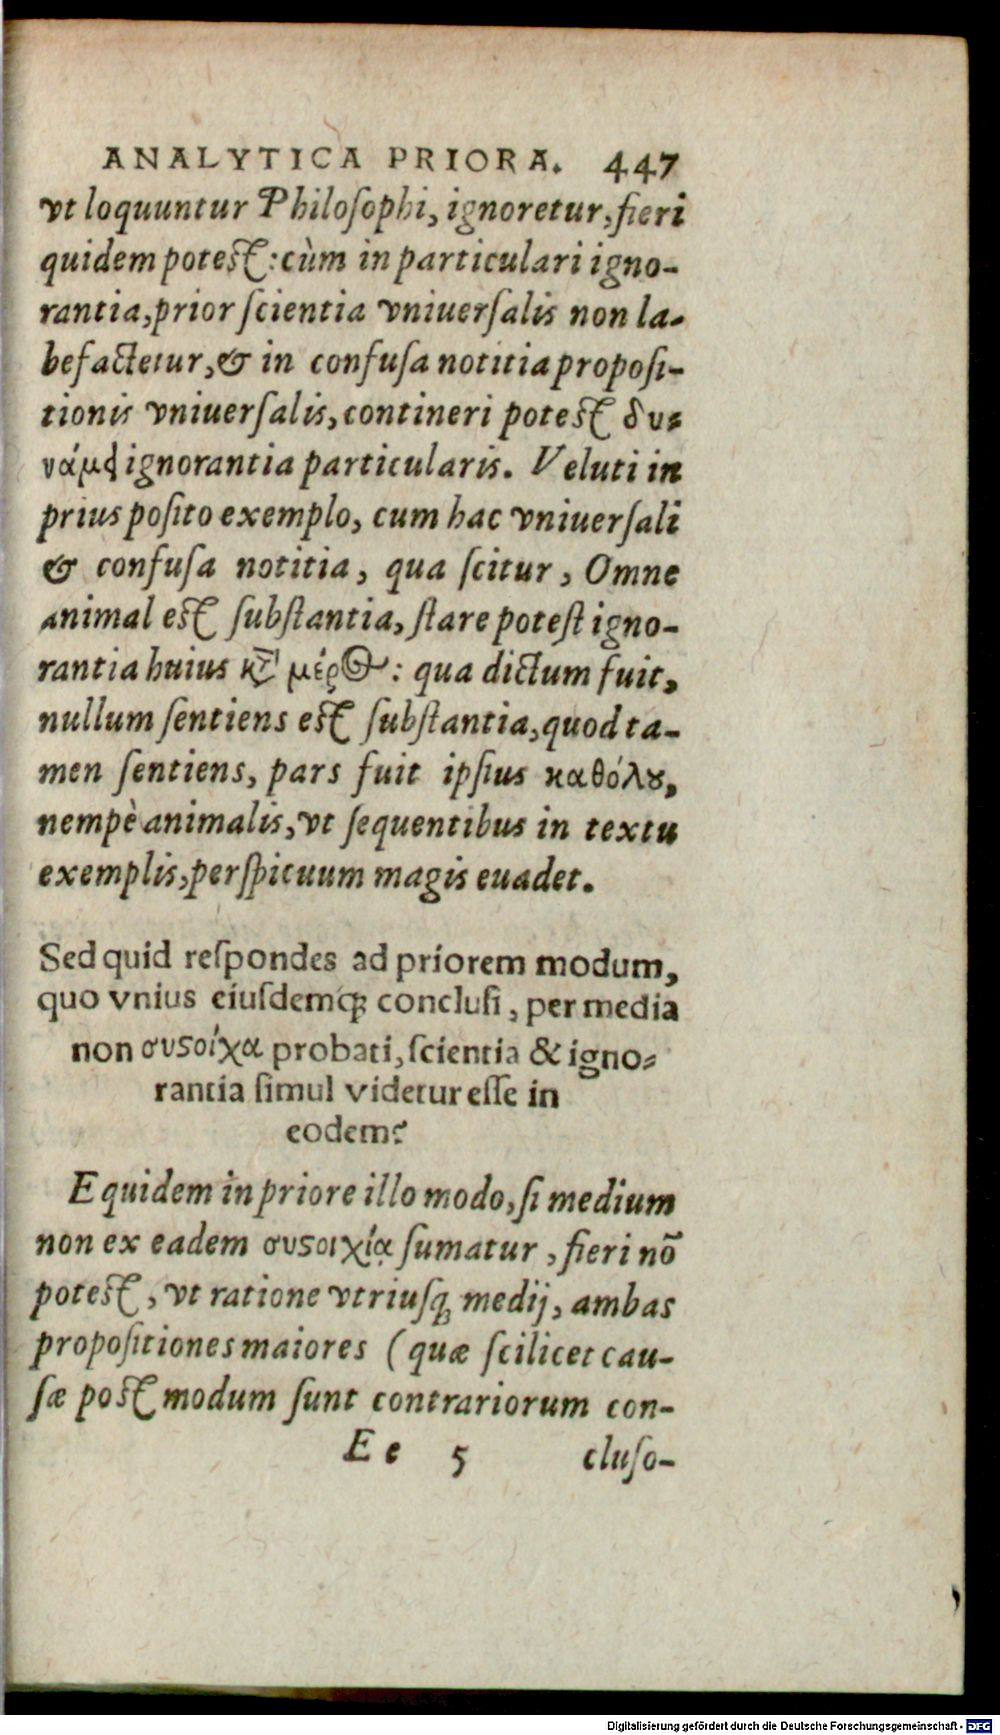 ANALYTICA PRIORA. 447
vt loquuntur Philoſophi, ignoretur, fieri
quidem poteſt: cùm in particulari igno-
rantia, prior ſcientia vniuerſalis non la-
befactetur, & in confuſa notitia propoſi-
tionis vniuerſalis, contineri poteſt δυ-
νάμει ignorantia particularis. Veluti in
prius poſito exemplo, cum hac vniuerſali
& confuſa notitia, qua ſcitur, Omne
animal eſt ſubſtantia, ſtare poteſt igno-
rantia huius κỳ μέρος: qua dictum fuit,
nullum ſentiens eſt ſubſtantia, quod ta-
men ſentiens, pars fuit ipſius καθόλȣ,
nempè animalis, vt ſequentibus in textu
exemplis, perſpicuum magis euadet.
Sed quid reſpondes ad priorem modum,
quo vnius eiuſdemq́; concluſi, per media
non συϛοίχα probati, ſcientia & igno-
rantia ſimul videtur eſſe in
eodem?
Equidem in priore illo modo, ſi medium
non ex eadem συϛοιχίᾳ ſumatur, fieri nō
poteſt, vt ratione vtriuſq; medij, ambas
propoſitiones maiores (quæ ſcilicet cau-
ſæ poſt modum ſunt contrariorum con-
Ee 5 cluſo-
Digitalisierung gefördert durch die Deutsche Forschungsgemeinschaft - DFG